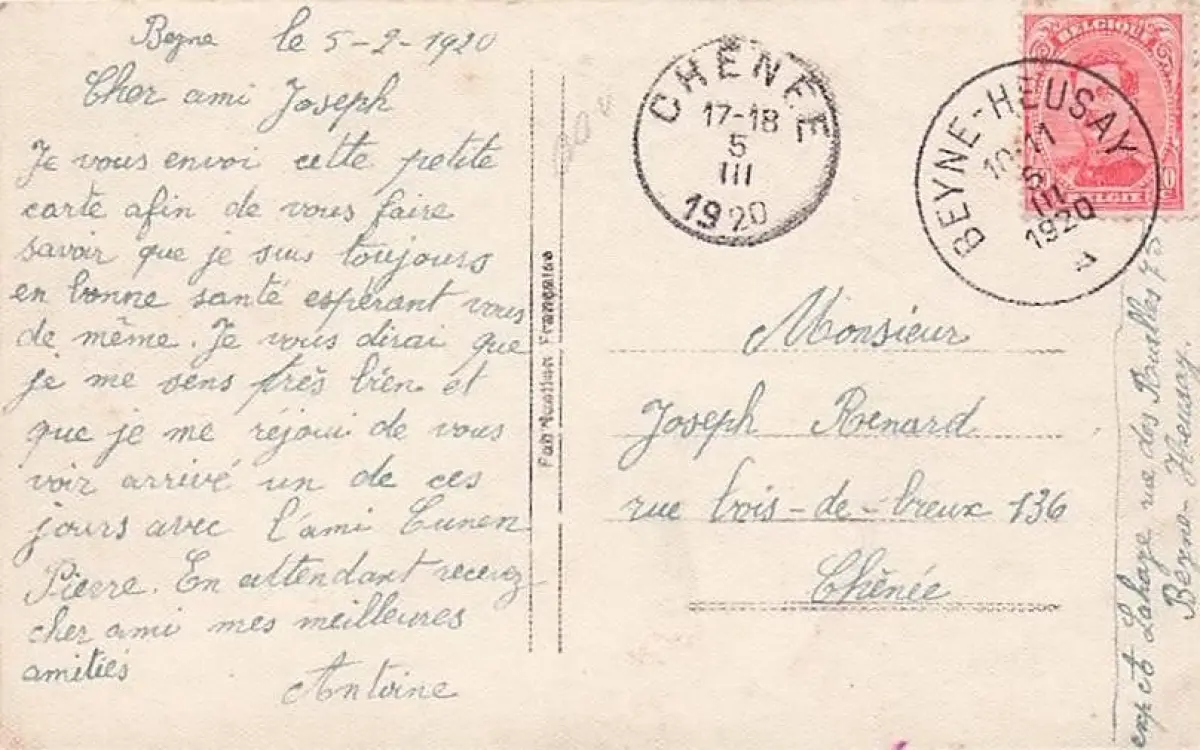 Beyne le 5-2-1920
Cher ami Joseph
Je vous envoi cette petite
carte afin de vous faire
savoir que je suis toujours
en bonne santé espérant vous
de même. Je vous dirai que
je me sens très bien et
que je me réjoui de vous
voir arrivé un de ces
jours avec l'ami Cunen
Pierre. En attendant recevez
cher ami mes meilleures
amitiés
Antoine
Fabrication Française
CHÊNÉE
17-18
5
III
1920
BELGIQUE
BELGIË
BEYNE-HEUSAY
10-11
5
III
1920
A
Monsieur
Joseph Renard
rue bois-de-breux 136
Chênée
rue des Bruelles 73
Beyne-Heusay.